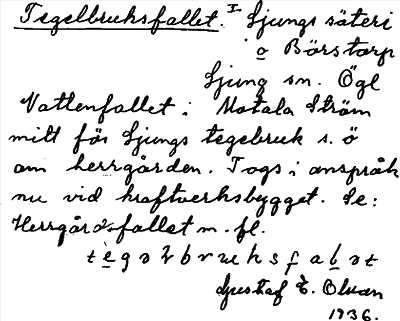 Tegelbruksfallet. I Ljungs säteri
o Börstorp
Ljung sn. Ögl
Vattenfallet i Motala Ström
mitt för Ljungs tegelbruk s. ö
om herrgården. Togs i anspråk
nu vid kraftverksbygget. Se:
Herrgårdsfallet m. fl.
Gustaf E. Olsson
1936.